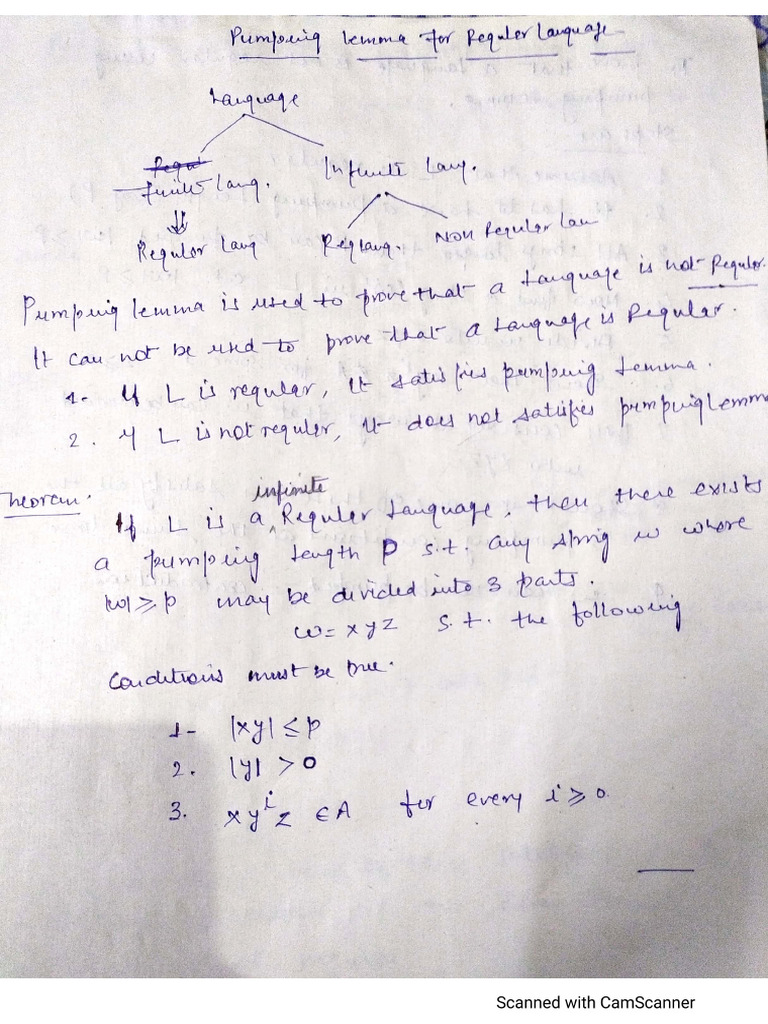 Pumping lemma for Regular Language
Language
Finite Lang. Infinite Lang.
Regular Lang Reg Lang. Non Regular Lan
Pumping lemma is used to prove that a Language is not Regular.
It can not be used to prove that a Language is Regular.
1. If L is regular, it satisfies pumping Lemma.
2. If L is not regular, it does not satisfies pumping Lemma
Theoram.
infinite
If L is a Regular Language, then there exists
a pumping Length P s.t. any string w where
|w| ≥ p may be divided into 3 parts.
w = xyz s.t. the following
Conditions must be true.
1- |xy| ≤ p
2. |y| > 0
3. xyⁱz ∈ A for every i ≥ 0.
Scanned with CamScanner